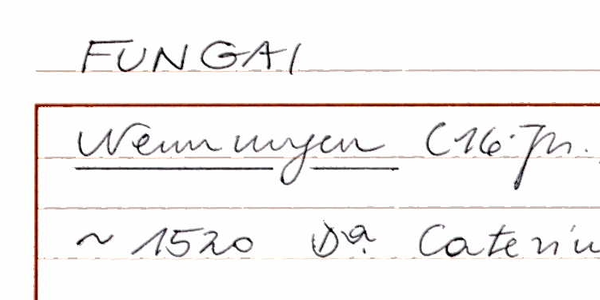 FUNGAI
Nennungen (16. Jh.
~ 1520 Dª. Caterin